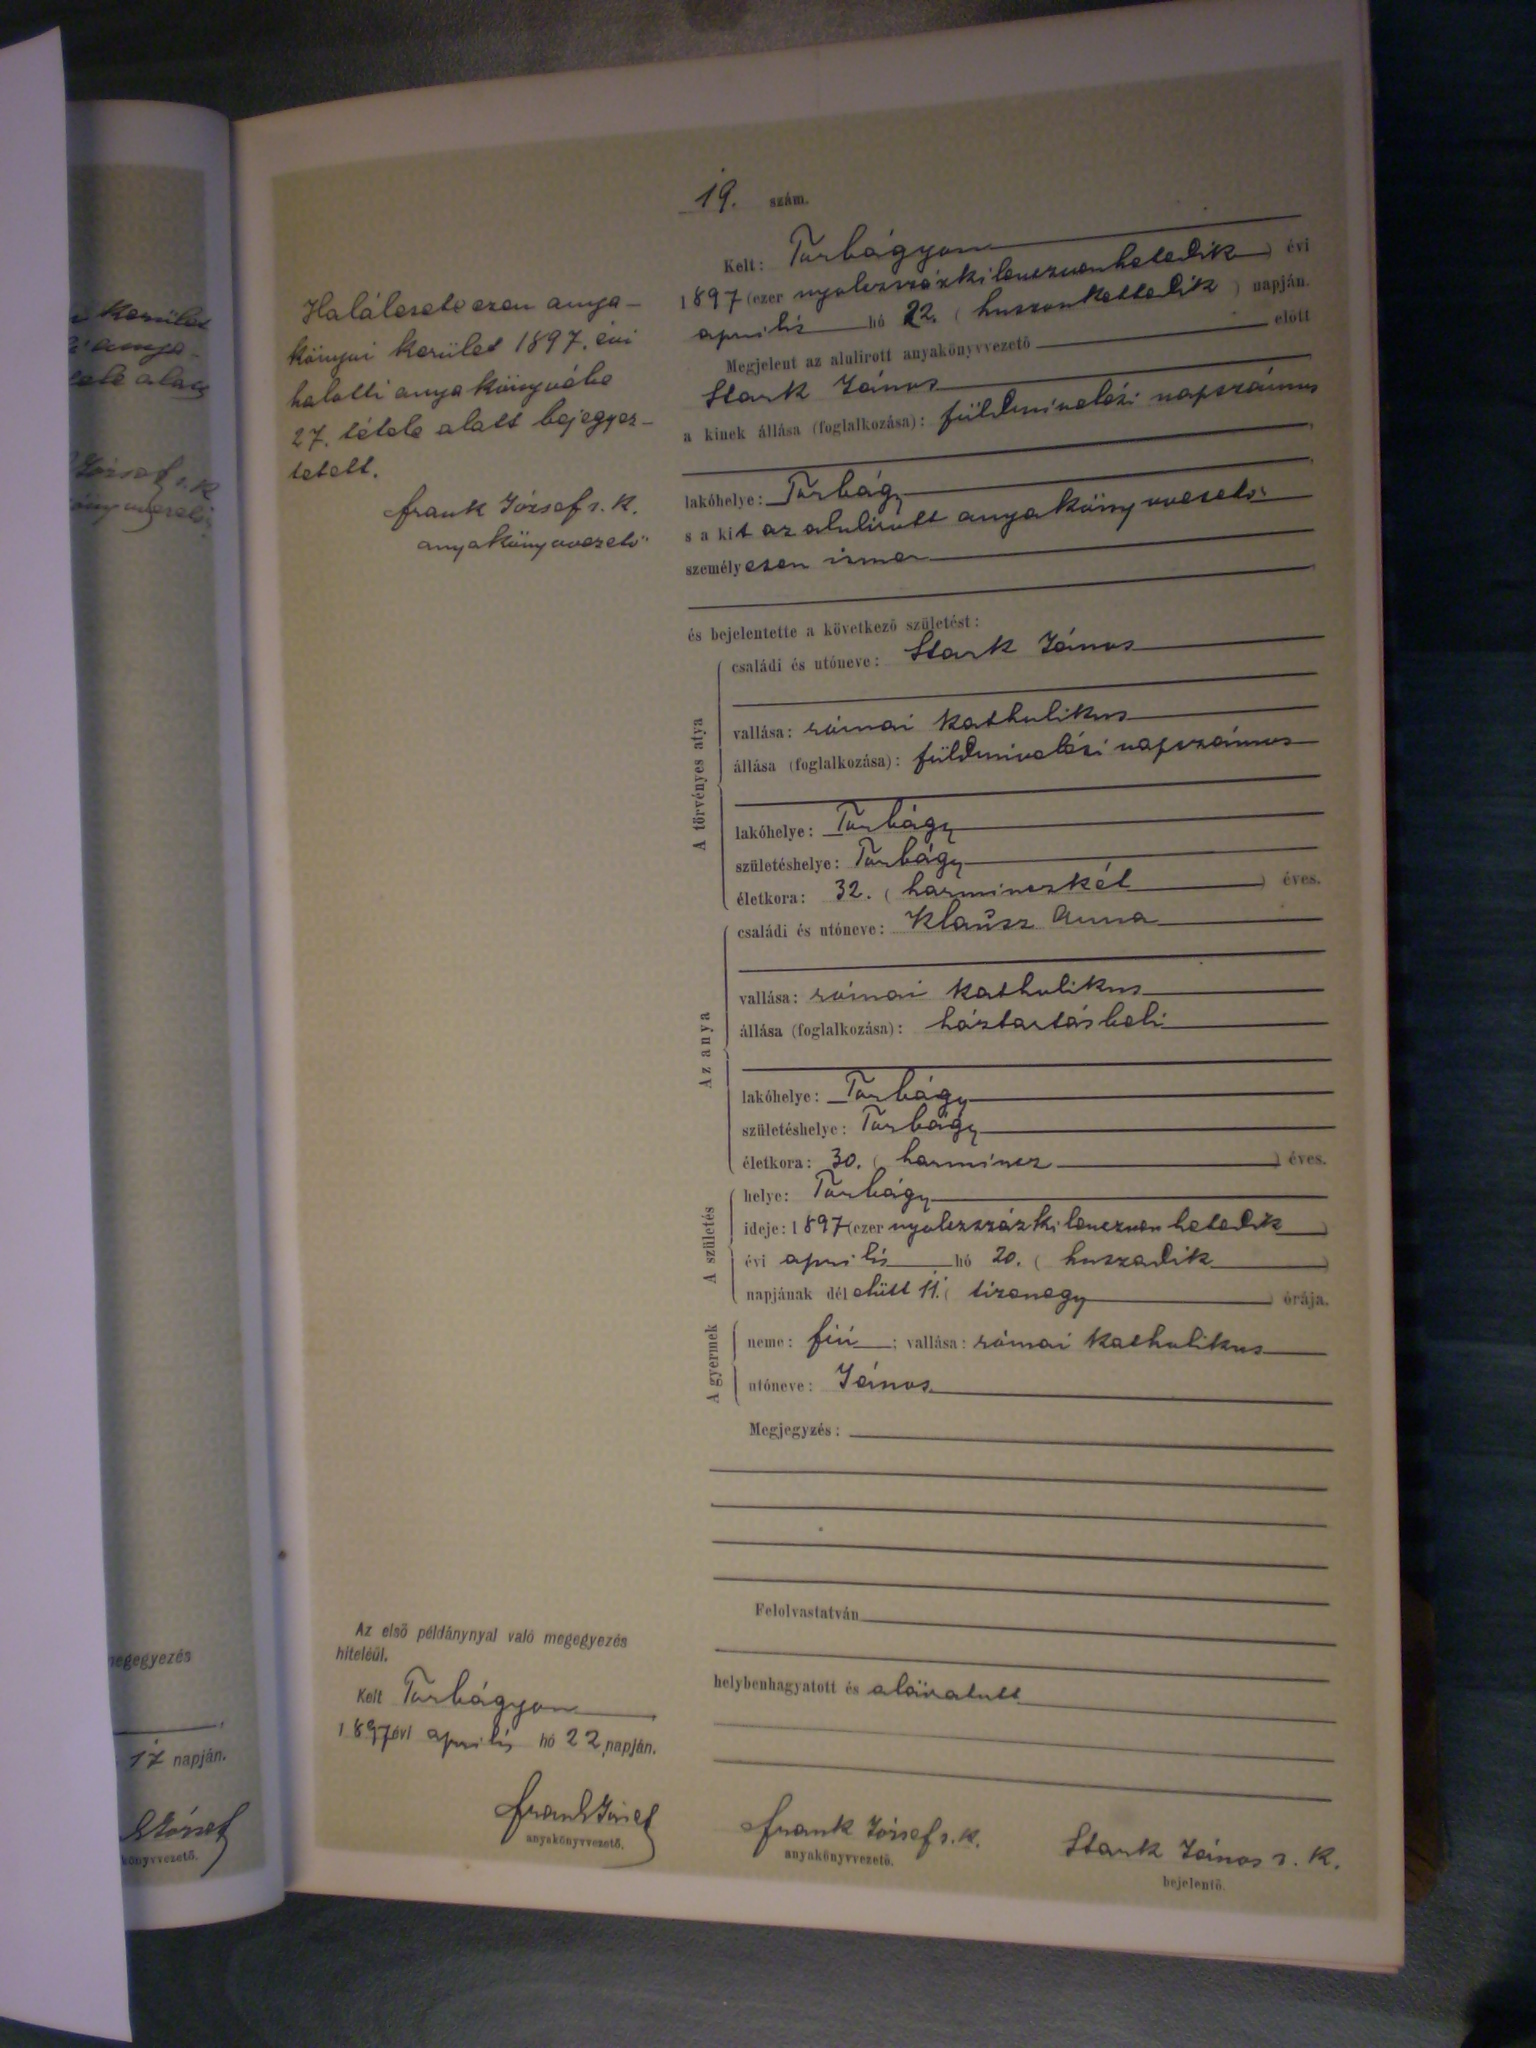 19. szám.
Kelt: Torbágyon
1897 (ezer nyolczszázkilenczvenhetedik) évi
április hó 22. (huszonkettedik) napján.
Megjelent az alulirott anyakönyvvezető előtt
Stark János
a kinek állása (foglalkozása): földmivelési napszámos
lakóhelye: Torbágy
s a kit az alulirott anyakönyvvezető
személyesen ismer
és bejelentette a következő születést:
A törvényes atya
családi és utóneve: Stark János
vallása: római katholikus
állása (foglalkozása): földmivelési napszámos
lakóhelye: Torbágy
születéshelye: Torbágy
életkora: 32. (harminczkét) éves.
Az anya
családi és utóneve: Klausz Anna
vallása: római katholikus
állása (foglalkozása): háztartásbeli
lakóhelye: Torbágy
születéshelye: Torbágy
életkora: 30. (harmincz) éves.
A születés
helye: Torbágy
ideje: 1897 (ezer nyolczszázkilenczvenhetedik)
évi április hó 20. (huszadik)
napjának dél előtt 11. (tizenegy) órája.
A gyermek
neme: fiú; vallása: római katholikus
utóneve: János
Megjegyzés:
Felolvastatván
helybenhagyatott és aláiratott
Frank József s. k.
anyakönyvvezető.
Stark János s. k.
bejelentő.
Halálesete ezen anya-
könyvi kerület 1897. évi
halotti anyakönyvébe
27. tétele alatt bejegyez-
tetett.
Frank József s. k.
anyakönyvvezető
Az első példánynyal való megegyezés
hiteléül.
Kelt Torbágyon
1897 évi április hó 22 napján.
Frank József
anyakönyvvezető.
kerület
anya-
alatt
József s. k.
megegyezés
17 napján.
József
könyvvezető.